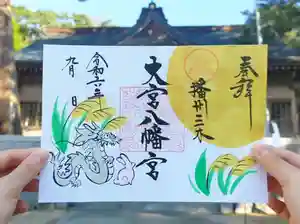 奉拝
播州三木
大宮八幡宮
令和六年
九月 日